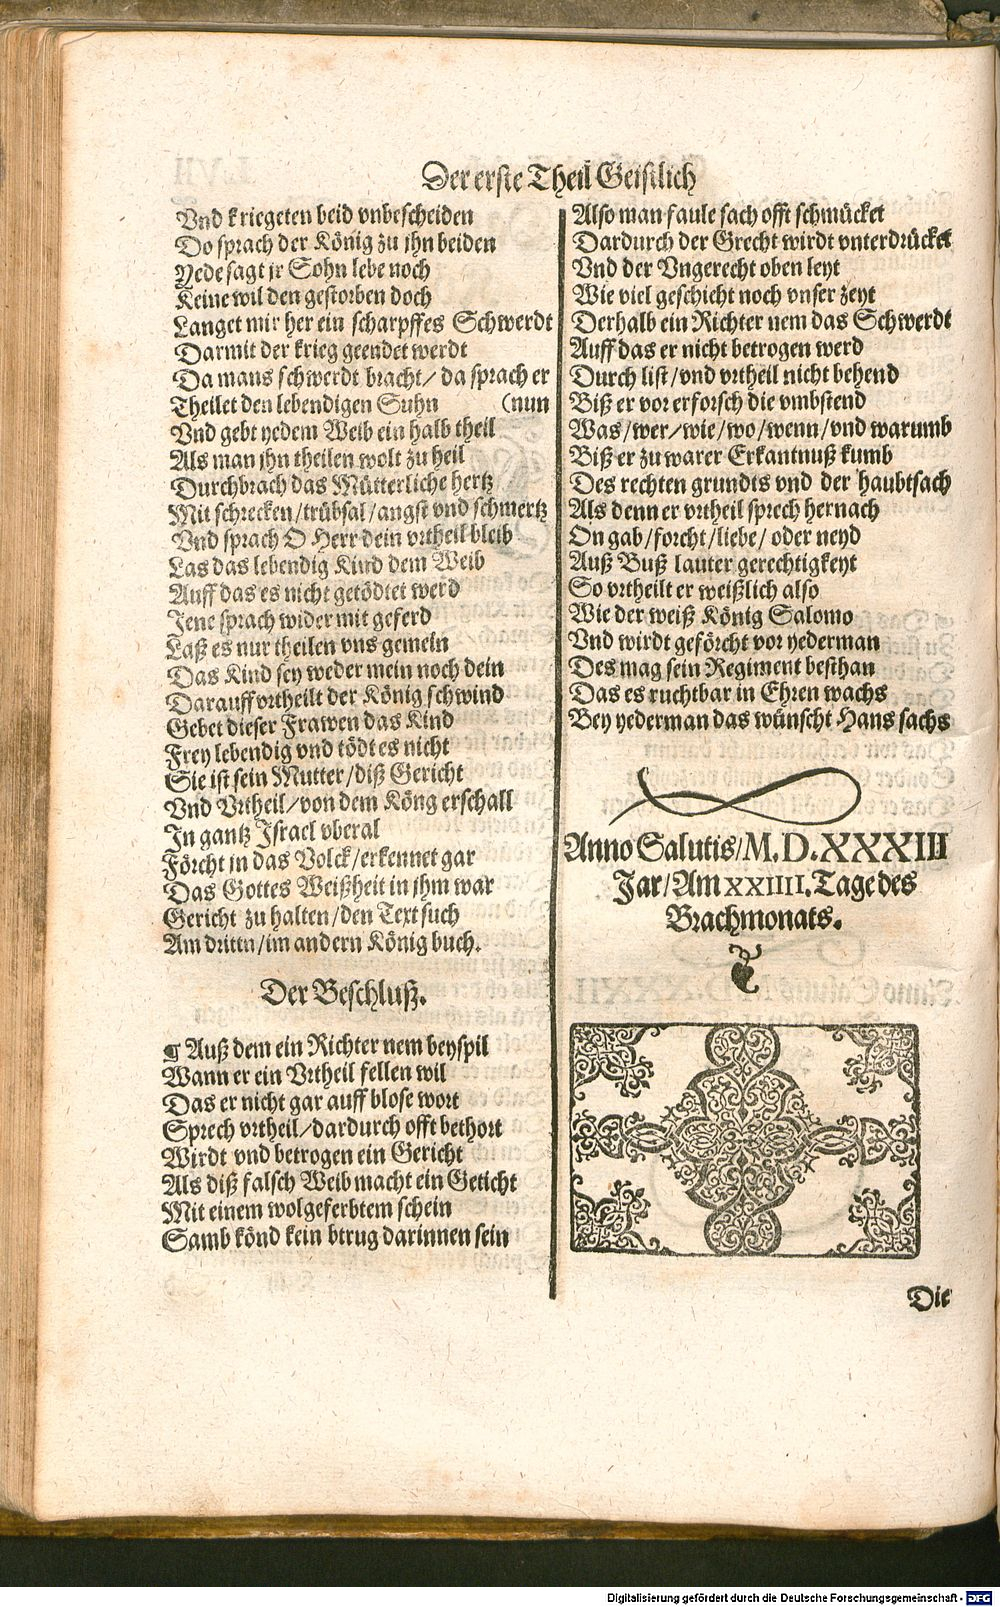 Der erste Theil Geistlich
Vnd kriegeten beid vnbescheiden
Do sprach der König zu jhn beiden
Yede sagt jr Sohn lebe noch
Keine wil den gestorben doch
Langet mir her ein scharpffes Schwerdt
Darmit der krieg geendet werdt
Da mans schwerdt bracht/ da sprach er
Theilet den lebendigen Suhn (nun
Vnd gebt yedem Weib ein halb theil
Als man jhn theilen wolt zu heil
Durchbrach das Mütterliche hertz
Mit schrecken/trübsal/angst vnd schmertz
Vnd sprach O Herr dein vrtheil bleib
Las das lebendig Kind dem Weib
Auff das es nicht getödtet werd
Jene sprach wider mit geferd
Laß es nur theilen vns gemein
Das Kind sey weder mein noch dein
Darauff vrtheilt der König schwind
Gebet dieser Frawen das Kind
Frey lebendig vnd tödt es nicht
Sie ist sein Mutter/diß Gericht
Vnd Vrtheil/von dem Köng erschall
In gantz Israel vberal
Förcht jn das Volck/erkennet gar
Das Gottes Weißheit in jhm war
Gericht zu halten/den Text such
Am drittn/im andern König buch.
Der Beschluß.
¶ Auß dem ein Richter nem beyspil
Wann er ein Vrtheil fellen wil
Das er nicht gar auff blose wort
Sprech vrtheil/dardurch offt bethort
Wirdt vnd betrogen ein Gericht
Als diß falsch Weib macht ein Geticht
Mit einem wolgeferbtem schein
Samb könd kein btrug darinnen sein
Also man faule sach offt schmücket
Dardurch der Grecht wirdt vnterdrücket
Vnd der Vngerecht oben leyt
Wie viel geschicht noch vnser zeyt
Derhalb ein Richter nem das Schwerdt
Auff das er nicht betrogen werd
Durch list/vnd vrtheil nicht behend
Biß er vor erforsch die vmbstend
Was/wer/wie/wo/wenn/vnd warumb
Biß er zu warer Erkantnuß kumb
Des rechten grundts vnd der haubtsach
Als denn er vrtheil sprech hernach
On gab/forcht/liebe/ oder neyd
Auß Buß lauter gerechtigkeyt
So vrtheilt er weißlich also
Wie der weiß König Salomo
Vnd wirdt geförcht vor yederman
Des mag sein Regiment besthan
Das es ruchtbar in Ehren wachs
Bey yederman das wünscht Hans sachs
Anno Salutis/M.D.XXXIII
Jar/Am XXIIII. Tage des
Brachmonats.
Die
Digitalisierung gefördert durch die Deutsche Forschungsgemeinschaft - DFG